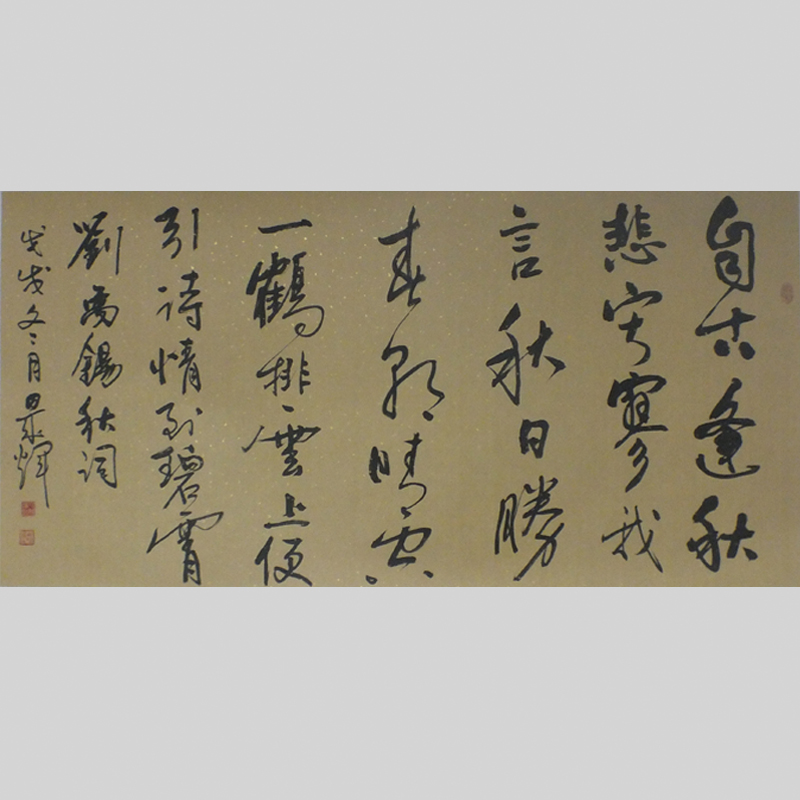 自古逢秋
悲寂寥我
言秋日勝
春朝晴空
一鶴排雲上便
引詩情到碧霄
劉禹錫秋詞
戊戌冬月